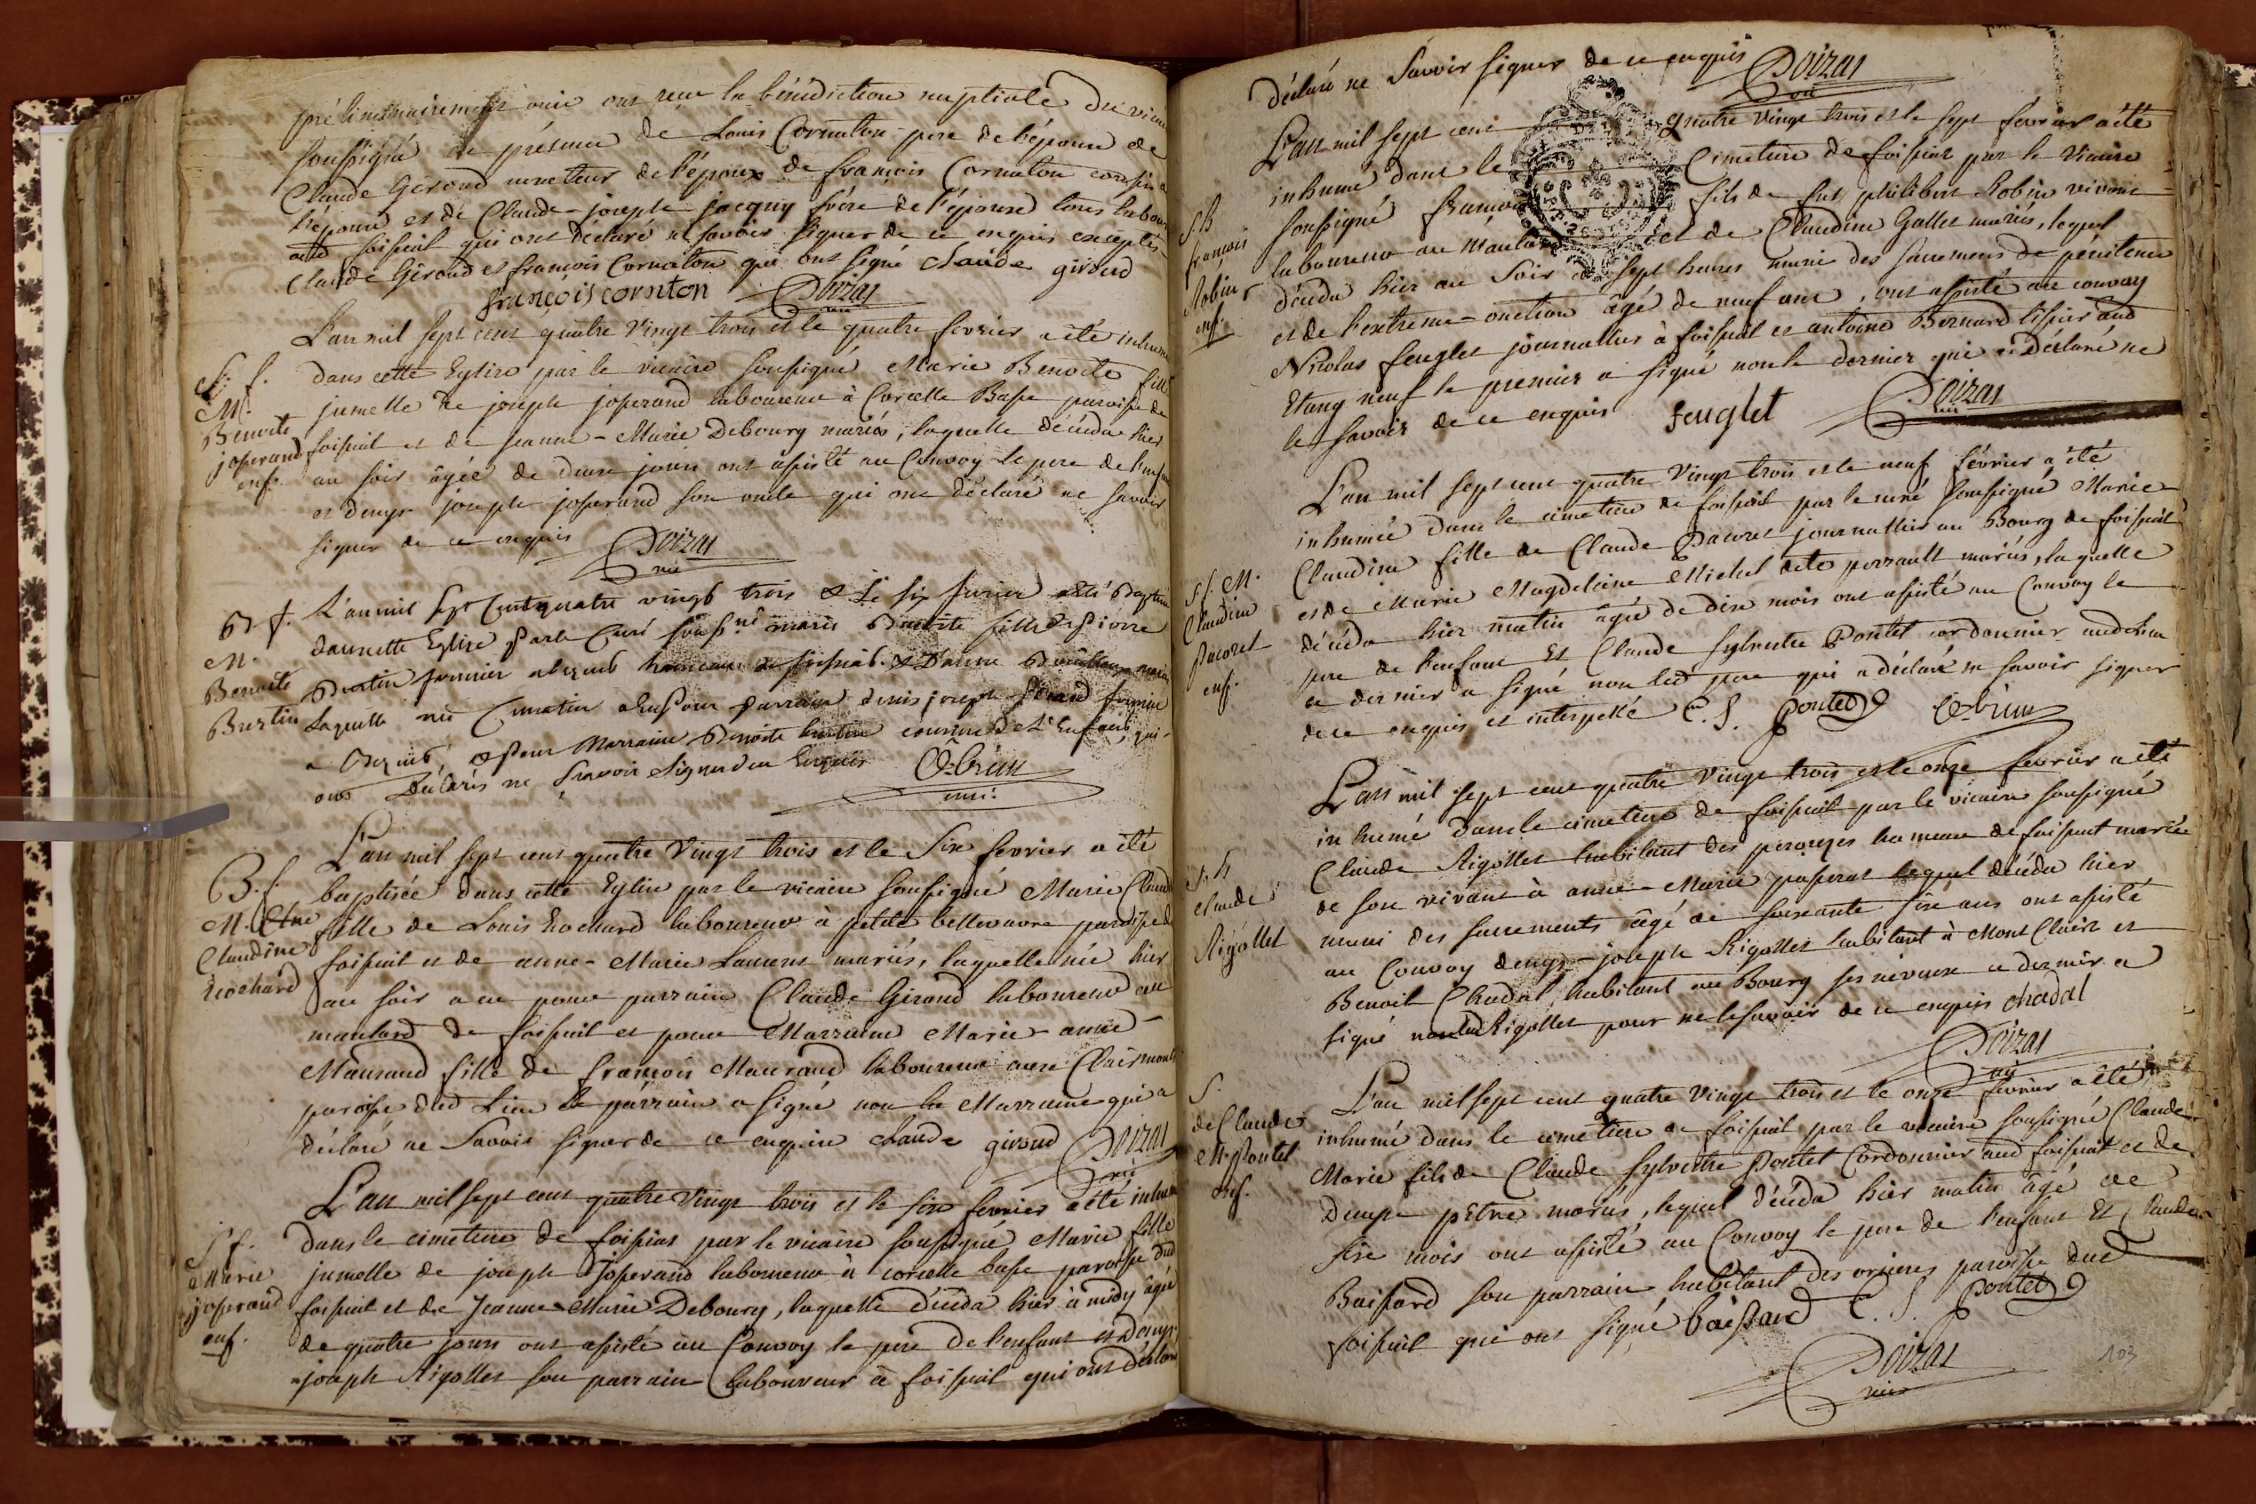 préliminairement ouie ont reçu la bénédiction nuptiale du vicaire
soussigné en présence de Louis Cornaton pere de l'épouse de
Claude Giroud curateur de l'époux de françois Cornaton cousin a
l'épouse et de Claude-joseph jacquy frére de l'épouse tous labour
aud foissiat qui ont declaré ne savoir signer de ce enquis exceptés
Claude Giroud et françois Cornaton qui ont signé claude giroud
françois cornton Doizat
vic
L'an mil sept cent quatre vingt trois et le quatre fevrier a été inhumé
S. f.
M.
Benoite
josserand
enf.
dans cette Eglise par le vicaire soussigné Marie Benoite fille
jumelle de joseph josserand laboureur à Corcelle Basse paroisse de
foissiat et de jeanne-Marie Debourg mariés, laquelle décéda hier
au soir âgée de deux jours ont assisté au Convoy le pere de l'enfant
et denys joseph josserand son oncle qui ont déclaré ne savoir
signer de ce enquis Doizat
vic
B f.
M.
Benoite
Burtin
L'an mil sept Cent quatre vingt trois & Le six fevrier a été Baptisée
dans cette Eglise par le Curé souss.né marie Benoite fille de Pierre
Burtin fermier
Laquelle née Ce matin a Eu pour parrain denis joseph
& pour Marraine Benoite burtin de L'Enfant, qui
ont Déclarés ne sçavoir Signer de ce Enquis
curé
L'an mil sept cent quatre Vingt trois et le Six fevrier a été
B. f.
M. Ctne
Claudine
Rochard
baptisée dans cette Eglise par le vicaire soussigné Marie Claud
fille de Louis Rochard laboureur à petite bellevavre paroisse de
foissiat et de anne-Marie Laurent mariés, laquelle née hier
au soir a eu pour parrain Claude Giroud laboureur au
mantard de foissiat et pour Marraine Marie-anne
Mauraud fille de françois Mauraud laboureur aux Clairmonts
paroisse dud Lieu le parrain a signé non la Marraine qui a
déclaré ne Savoir signer de ce enquise claude giroud Doizat
vic
L'an mil sept cent quatre Vingt trois et le six fevrier a été inhumé
S f.
Marie
josserand
enf.
dans le cimetiere de foissiat par le vicaire soussigné Marie fille
jumelle de joseph josserand laboureur à corcelle basse paroisse dud
foissiat et de Jeanne-Marie Debourg, laquelle décéda hier à midy âgée
de quatre jours ont assisté au Convoy le pere de l'enfant et denys
joseph Rigollet son parrain laboureur à foissiat qui ont déclaré
déclaré ne Savoir signer de ce enquis Doizat
vic
L'an mil sept cent quatre Vingt trois et le sept février a été
S. B
françois
Robin
enf.
inhumé dans le Cimetiere de foissiat par le Vicaire
soussigné francois fils de fut philibert Robin vivant
laboureur au Mantard et de Claudine Gallet mariés, lequel
décéda hier au Soir à sept heures muni des sacremens de pénitence
et de l'extreme-onction âgé de neuf ans, ont assisté au convoy
Nicolas feuglet journallier à foissiat et antoine Bernard tissier aud
Etang neuf le premier a signé non le dernier qui a déclaré ne
le savoir de ce enquis feuglet Doizat
vic
L'an mil sept cent quatre Vingt trois et le neuf février a été
S f. M.
Claudine
pacoret
enf.
inhumée dans le cimetiere de foissiat par le curé soussigné Marie
Claudine fille de Claude Pacoret journallier au Bourg de foissiat
et de Marie Magdeleine Michel dite perrault mariés, laquelle
décéda hier matin âgée de dix mois ont assisté au Convoy le
pere de l'enfant Et Claude Sylvestre Pontet cordonnier audit lieu
ce dernier a signé non led pere qui a déclaré ne savoir signer
de ce enquis et interpellé C. S. pontet
L'an mil sept cent quatre Vingt trois et le onze fevrier a été
S. h
claude
Rigollet
inhumé dans le cimetiere de foissiat par le vicaire soussigné
Claude Rigollet habitant des perouzes hameau de foissiat marié
de son vivant à anne-Marie passerat lequel décéda hier
muni des sacrements âgé de soixante six ans ont assisté
au Convoy denys-joseph Rigollet habitant à Mont Clair et
Benoit Chadal habitant au Bourg ses neveux ce dernier a
signé non led Rigollet pour ne le savoir de ce enquis chadal
Doizat
vic
L'an mil sept cent quatre Vingt trois et le onze fevrier a été
S.
de Claude
M. Pontet
enf.
inhumé dans le cimetiere de foissiat par le vicaire soussigné Claude
Marie fils de Claude Sylvestre Pontet Cordonnier aud foissiat et de
Denyse pitre mariés, lequel décéda hier matin âgé de
six mois ont assisté au Convoy le pere de l'enfant Et Claude
Baissard son parrain habitant des orcieres paroisse dud
foissiat qui ont signé baissard C. S. pontet
Doizat
vic
103